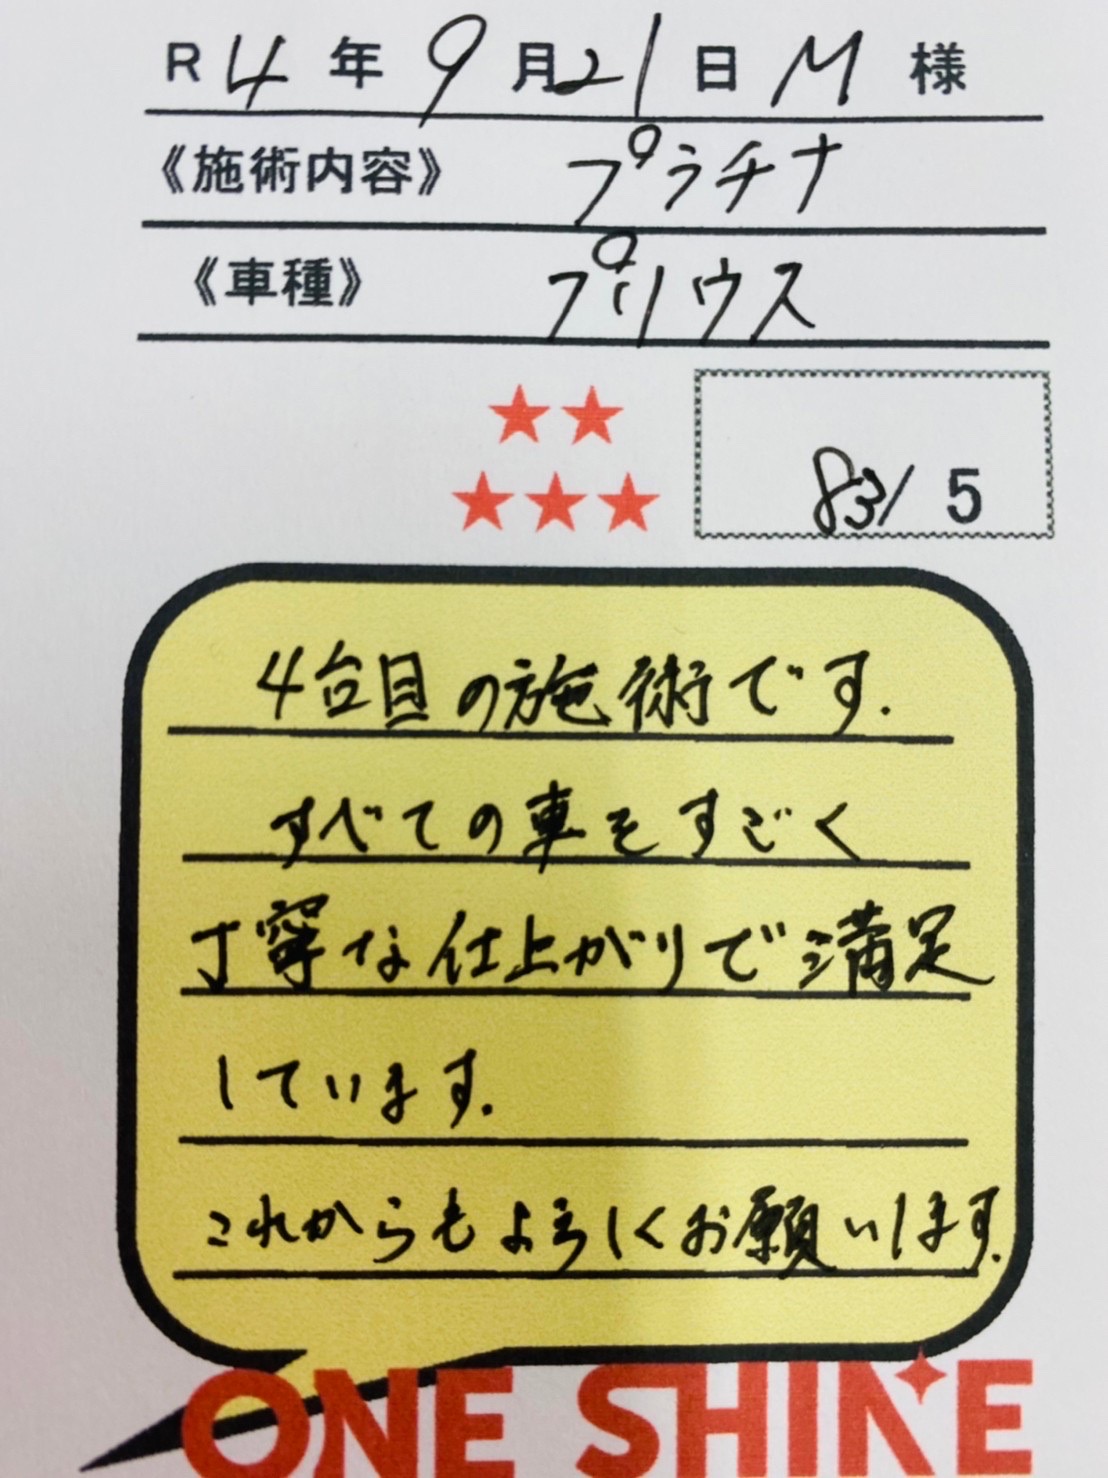 R 4 年 9 月 21 日 M 様
《施術内容》 プラチナ
《車種》 プリウス
83/5
4台目の施術です.
すべての車もすごく
丁寧な仕上がりで満足
しています.
これからもよろしくお願いします.
ONE SHINE